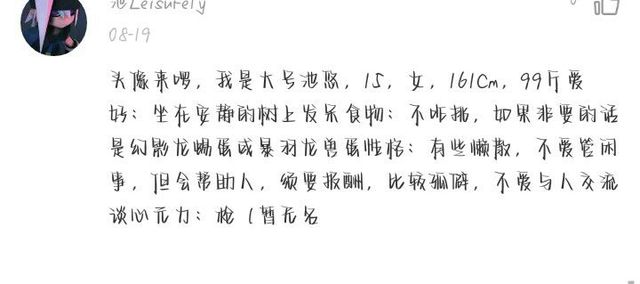 池Leisurely
08-19
头像来啰，我是大号池悠，15，女，161Cm，99斤爱
好：坐在安静的树上发呆食物：不咋挑，如果非要的话
是幻影龙蜴蛋或暴羽龙兽蛋性格：有些懒散，不爱管闲
事，但会帮助人，须要报酬，比较孤僻，不爱与人交流
谈心元力：枪（暂无名